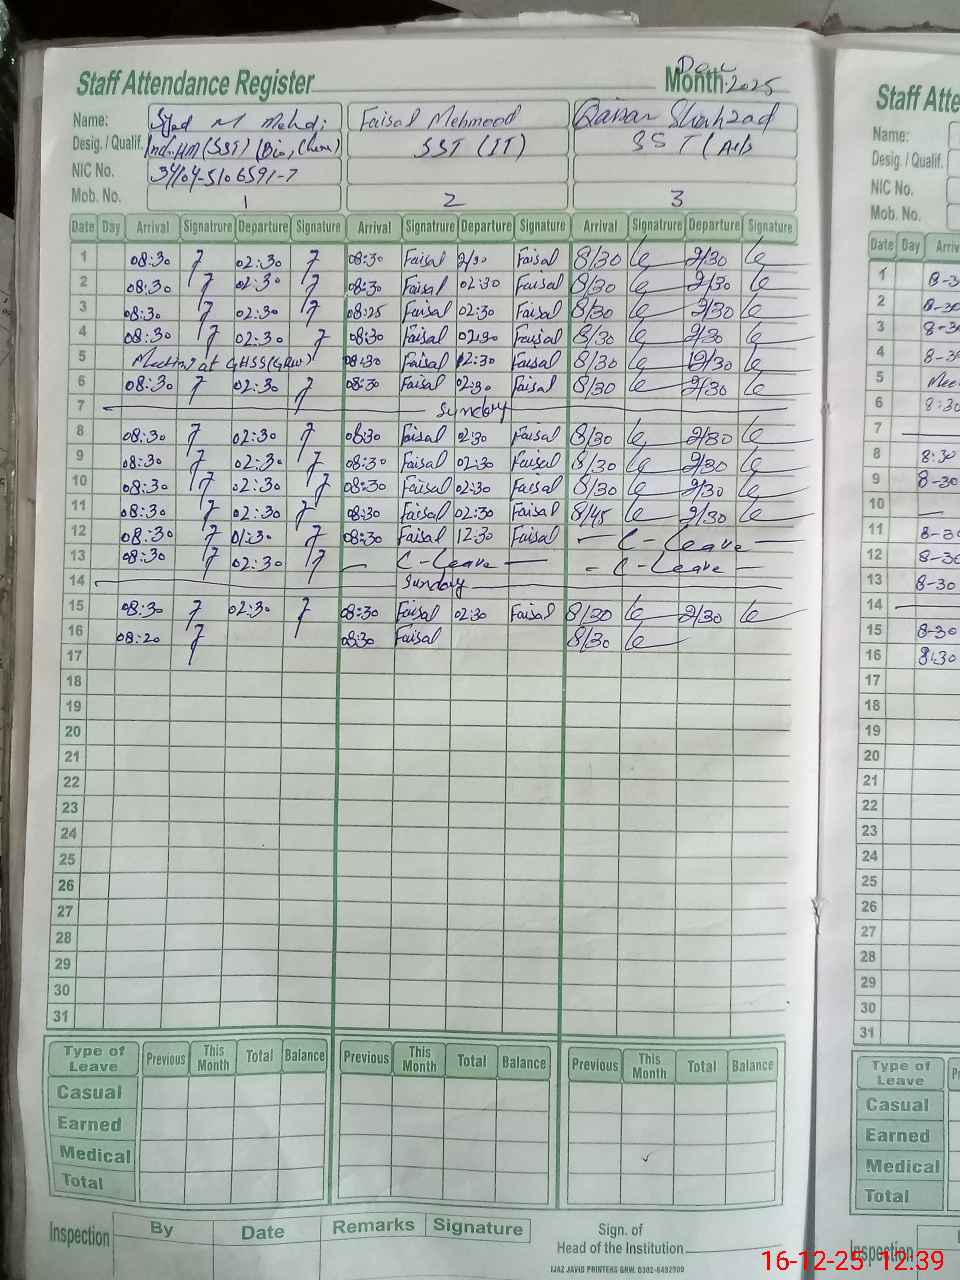 Staff Attendance Register Month Dec 2025
Name: Syed M Mehdi Faisal Mehmood Qaisar Shahzad
Desig. / Qualif. Ind.HM (SST) (Bio, Chem) SST (IT) SST (Art)
NIC No. 34104-5106591-7
Mob. No. 1 2 3
Date Day Arrival Signatrure Departure Signature Arrival Signatrure Departure Signature Arrival Signatrure Departure Signature
1 08:30 02:30 08:30 Faisal 2/30 Faisal 8/30 2/30
2 08:30 02:30 08:30 Faisal 02:30 Faisal 8/30 2/30
3 08:30 02:30 08:25 Faisal 02:30 Faisal 8/30 2/30
4 08:30 02:30 08:30 Faisal 02:30 Faisal 8/30 2/30
5 Meeting at GHSS 08:30 Faisal 12:30 Faisal 8/30 12/30
6 08:30 02:30 08:30 Faisal 02:30 Faisal 8/30 2/30
7 Sunday
8 08:30 02:30 08:30 Faisal 02:30 Faisal 8/30 2/30
9 08:30 02:30 08:30 Faisal 02:30 Faisal 8/30 2/30
10 08:30 02:30 08:30 Faisal 02:30 Faisal 8/30 2/30
11 08:30 02:30 08:30 Faisal 02:30 Faisal 8/45 2/30
12 08:30 01:30 08:30 Faisal 12:30 Faisal C-Leave
13 08:30 02:30 C-Leave C-Leave
14 Sunday
15 08:30 02:30 08:30 Faisal 02:30 Faisal 8/30 2/30
16 08:20 08:30 Faisal 8/30
17
18
19
20
21
22
23
24
25
26
27
28
29
30
31
Type of Leave Previous This Month Total Balance Previous This Month Total Balance Previous This Month Total Balance
Casual
Earned
Medical
Total
Inspection By Date Remarks Signature
Sign. of
Head of the Institution
IJAZ JAVID PRINTERS GRW. 0302-6492900
Staff Atte
Name:
Desig. / Qualif.
NIC No.
Mob. No.
Date Day Arriv
1 8-3
2 8-30
3 8-30
4 8-30
5 Mee
6 8:30
7
8 8:30
9 8-30
10
11 8-30
12 8-30
13 8-30
14
15 8-30
16 8:30
17
18
19
20
21
22
23
24
25
26
27
28
29
30
31
Type of Leave
Casual
Earned
Medical
Total
Inspection
16-12-25 12:39